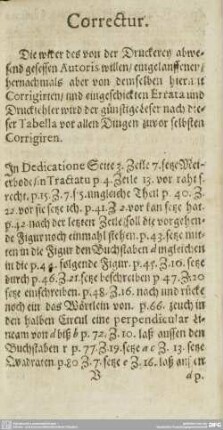 Correctur.
Die wider des von der Druckerey abwe-
send gesessen Autoris willen/ eingelauffene/
hernachmals aber von demselben hierin
Corrigirten/ und eingeschickten Errata und
Druckfehler wird der günstige Leser nach die-
ser Tabella vor allen Dingen zuvor selbsten
Corrigiren.
In Dedicatione Seite 3. Zeile 7. setze Me-
thode/ in Tractatu p 4. Zeile 13. vor raht s.
recht. p.15. Z.7. s. ungleiche Theil p. 40. Z.
22. vor sie setze ich. p.41. Z.2 vor kan setze hat
p.42 nach der letzten Zeile soll die vorgehen-
de Figur noch einmahl stehen. p.43. setze mit-
ten in die Figur den Buchstaben d ingleichen
in die p.44. folgende Figur. p.45. Z.10. setz
durch p.46. Z.21. setze beschreiben p 47. Z.20
setze einschreiben. p.48. Z.16. nach und rücke
noch ein das Wörtlein von. p.66. zeuch in
den halben Circul eine perpendicular Li-
neam von a biß b p. 72. Z.10. laß aussen den
Buchstaben r p. 77. Z.19. setze a c Z. 13. setze
Quadraten p.80 Z.7. setze c Z.16. laß aussen
V
d p.